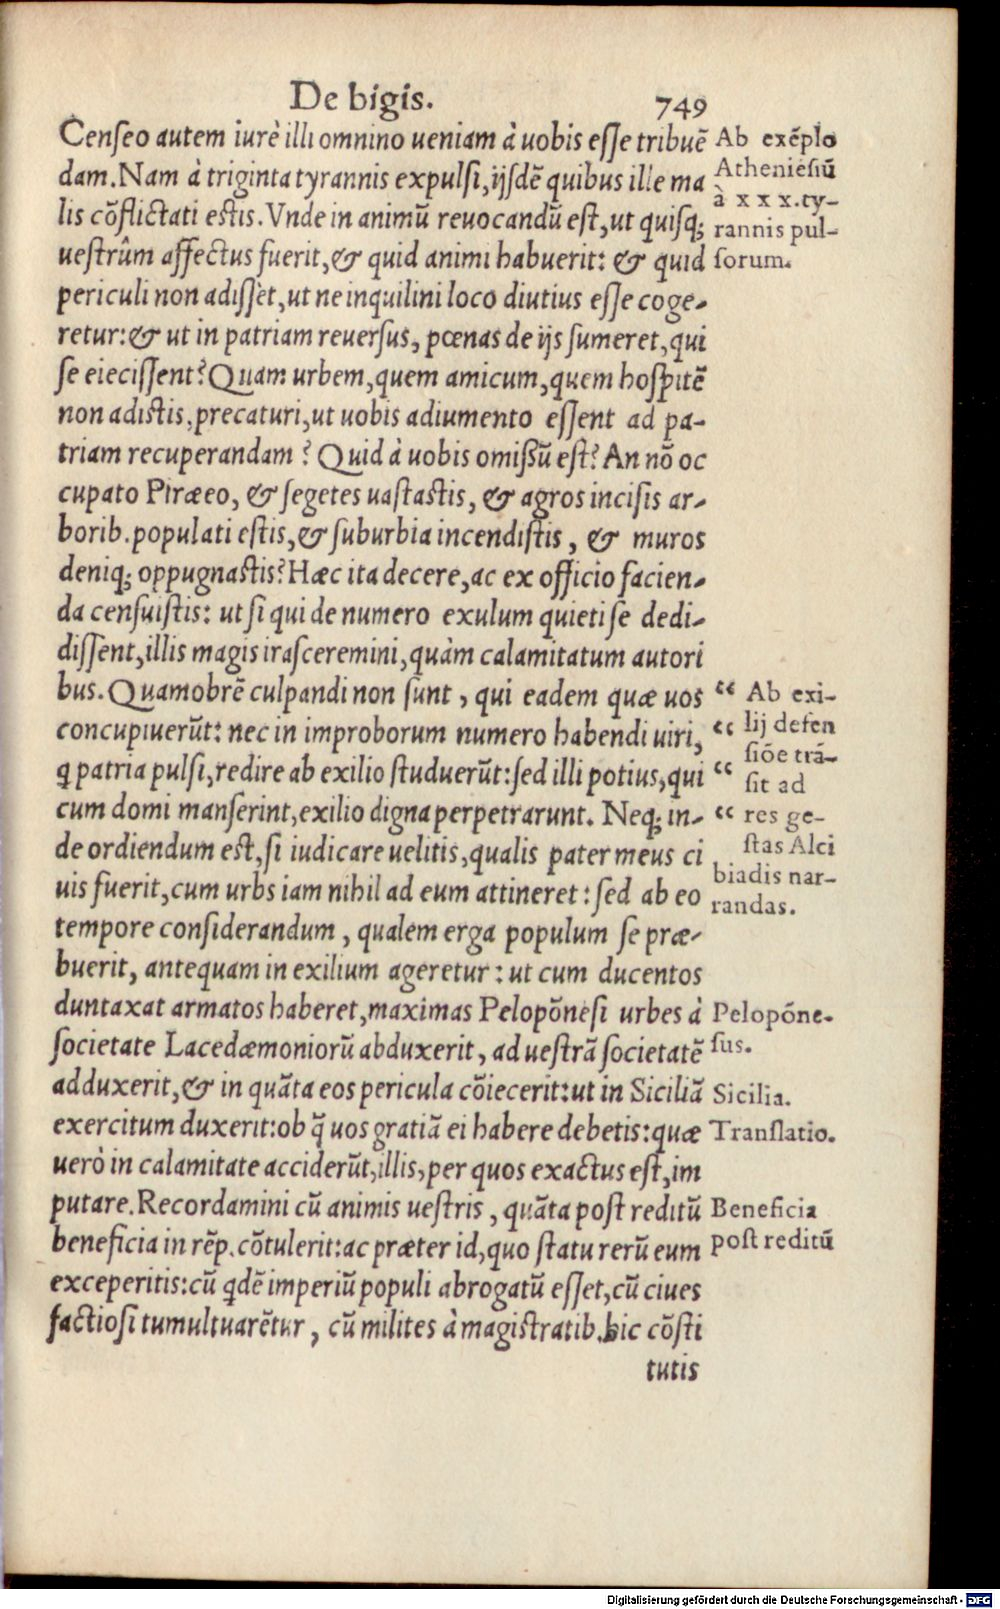 De bigis. 749
Censeo autem iurè illi omnino ueniam à uobis esse tribuē
dam. Nam à triginta tyrannis expulsi, ijsdē quibus ille ma
lis cōflictati estis. Vnde in animū reuocandū est, ut quisq;
uestrûm affectus fuerit, & quid animi habuerit: & quid
periculi non adisset, ut ne inquilini loco diutius esse coge-
retur: & ut in patriam reuersus, pœnas de ijs sumeret, qui
se eiecissent? Quam urbem, quem amicum, quem hospitē
non adistis, precaturi, ut uobis adiumento essent ad pa-
triam recuperandam? Quid à uobis omissū est? An nō oc
cupato Piræeo, & segetes uastastis, & agros incisis ar-
borib. populati estis, & suburbia incendistis, & muros
deniq; oppugnastis? Hæc ita decere, ac ex officio facien-
da censuistis: ut si qui de numero exulum quieti se dedi-
dissent, illis magis irasceremini, quàm calamitatum autori
bus. Quamobrē culpandi non sunt, qui eadem quæ uos
concupiuerūt: nec in improborum numero habendi uiri,
q patria pulsi, redire ab exilio studuerūt: sed illi potius, qui
cum domi manserint, exilio digna perpetrarunt. Neq; in-
de ordiendum est, si iudicare uelitis, qualis pater meus ci
uis fuerit, cum urbs iam nihil ad eum attineret: sed ab eo
tempore considerandum, qualem erga populum se præ-
buerit, antequam in exilium ageretur: ut cum ducentos
duntaxat armatos haberet, maximas Pelopōnesi urbes à
societate Lacedæmoniorū abduxerit, ad uestrā societatē
adduxerit, & in quāta eos pericula cōiecerit: ut in Siciliā
exercitum duxerit: ob q̄ uos gratiā ei habere debetis: quæ
uerò in calamitate acciderūt, illis, per quos exactus est, im
putare. Recordamini cū animis uestris, quāta post reditū
beneficia in rēp. cōtulerit: ac præter id, quo statu rerū eum
exceperitis: cū qdē imperiū populi abrogatū esset, cū ciues
factiosi tumultuarētur, cū milites à magistratib. hic cōsti
tutis
Ab exēplo
Atheniēsiū
à xxx. ty-
rannis pul-
sorum.
“ Ab exi-
“ lij defen
siōe trā-
“ sit ad
“ res ge-
stas Alci
biadis nar-
randas.
Pelopōne-
sus.
Sicilia.
Translatio.
Beneficia
post reditū
Digitalisierung gefördert durch die Deutsche Forschungsgemeinschaft - DFG